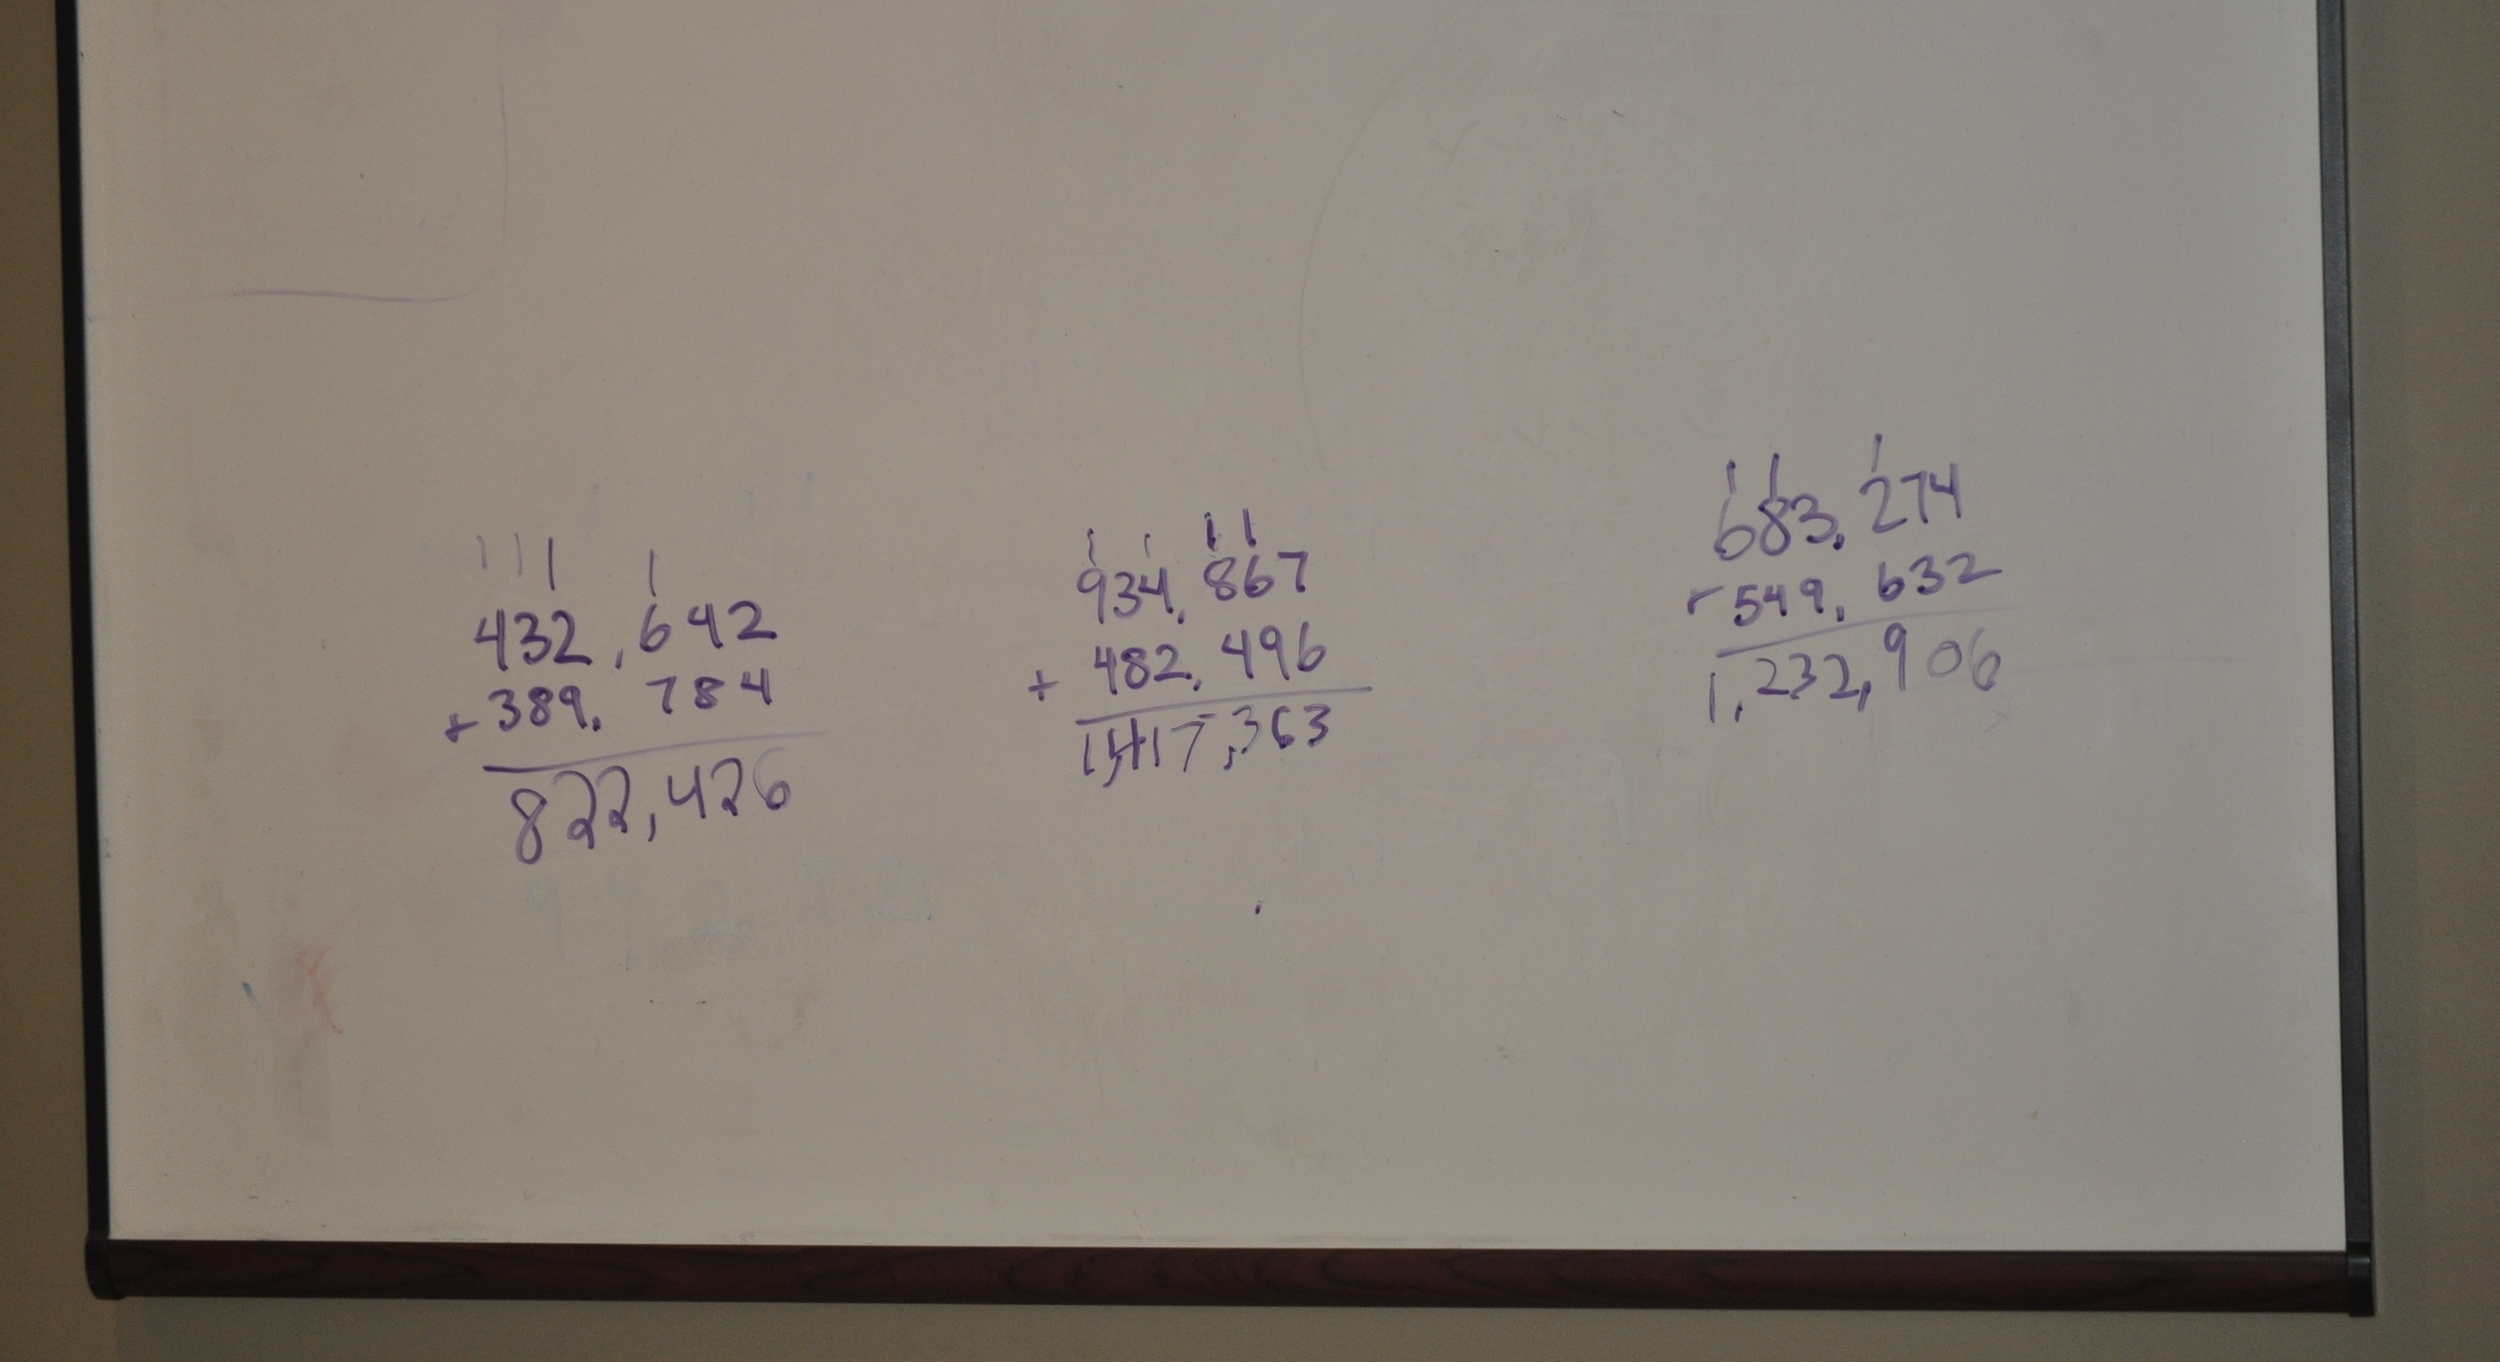 1 1 1 1
432,642
+ 389,784
822,426
1 1 1 1
934,867
+ 482,496
1,417,363
1 1 1
683,274
- 549,632
1,232,906